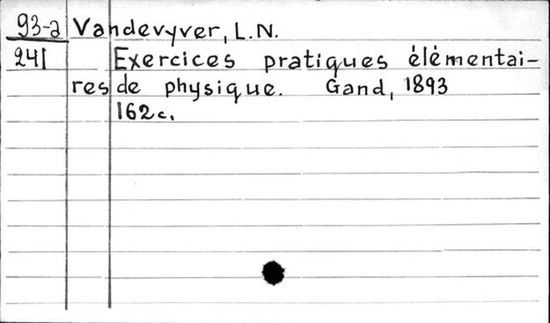 93-2 Vandevyver, L.N.
241 Exercices pratiques élémentai-
res de physique. Gand, 1893
162c.